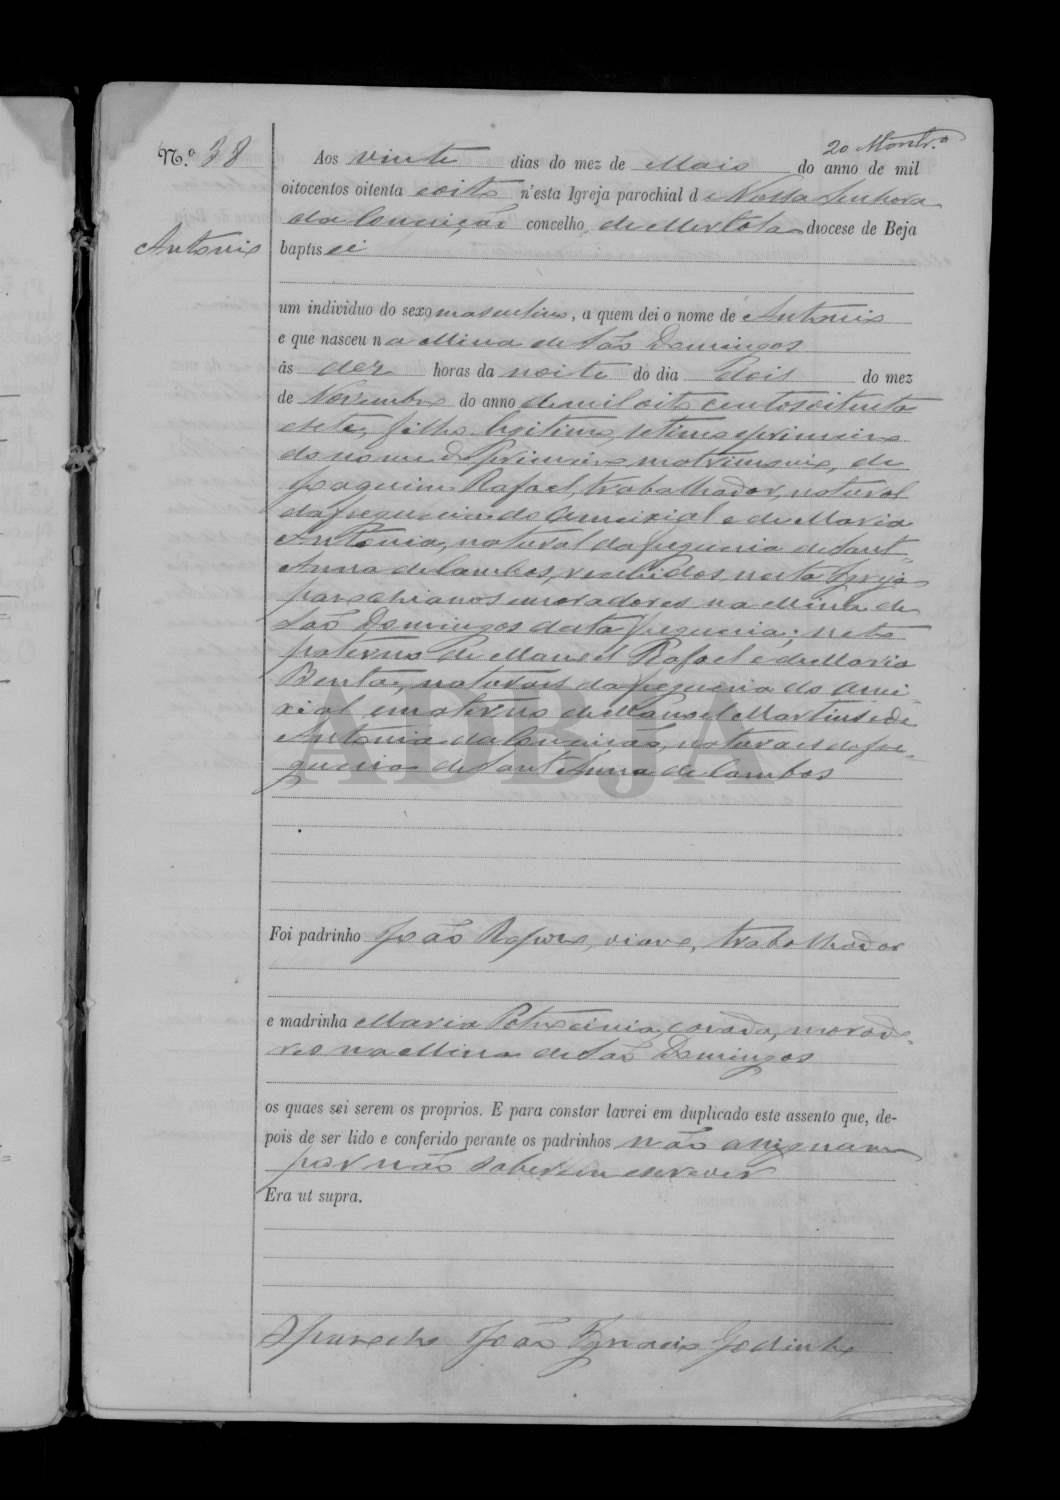 N.º 38
Aos vinte dias do mez de Maio do anno de mil
oitocentos oitenta e oito n'esta Igreja parochial de Nossa Senhora
da Conceição concelho de Mertola diocese de Beja
Antonio
baptisei
um individuo do sexo masculino, a quem dei o nome de Antonio
e que nasceu na Mina de São Domingos
ás dez horas da noite do dia dois do mez
de Novembro do anno de mil oito centos oitenta
e sete, filho legitimo, setimo e primeiro
do nome do primeiro matrimonio, de
Joaquim Rafael, trabalhador, natural
da freguesia do Ameixial e de Maria
Antonia, natural da freguesia de Sant'
Anna de Cambas, recebidos nesta Igreja
parochianos e moradores na Mina de
São Domingos desta freguesia; neto
paterno de Manoel Rafael e de Maria
Benta, naturaes da freguesia do Amei-
xial e materno de Manoel Martins e de
Antonia da Conceição, naturaes da fre-
guesia de Sant'Anna de Cambas
AD BJA
Foi padrinho João viuvo, trabalhador
e madrinha Maria casada, morado-
res na Mina de São Domingos
os quaes sei serem os proprios. E para constar lavrei em duplicado este assento que, de-
pois de ser lido e conferido perante os padrinhos não assignam
por não saberem escrever
Era ut supra.
O parocho João Ignacio Godinho